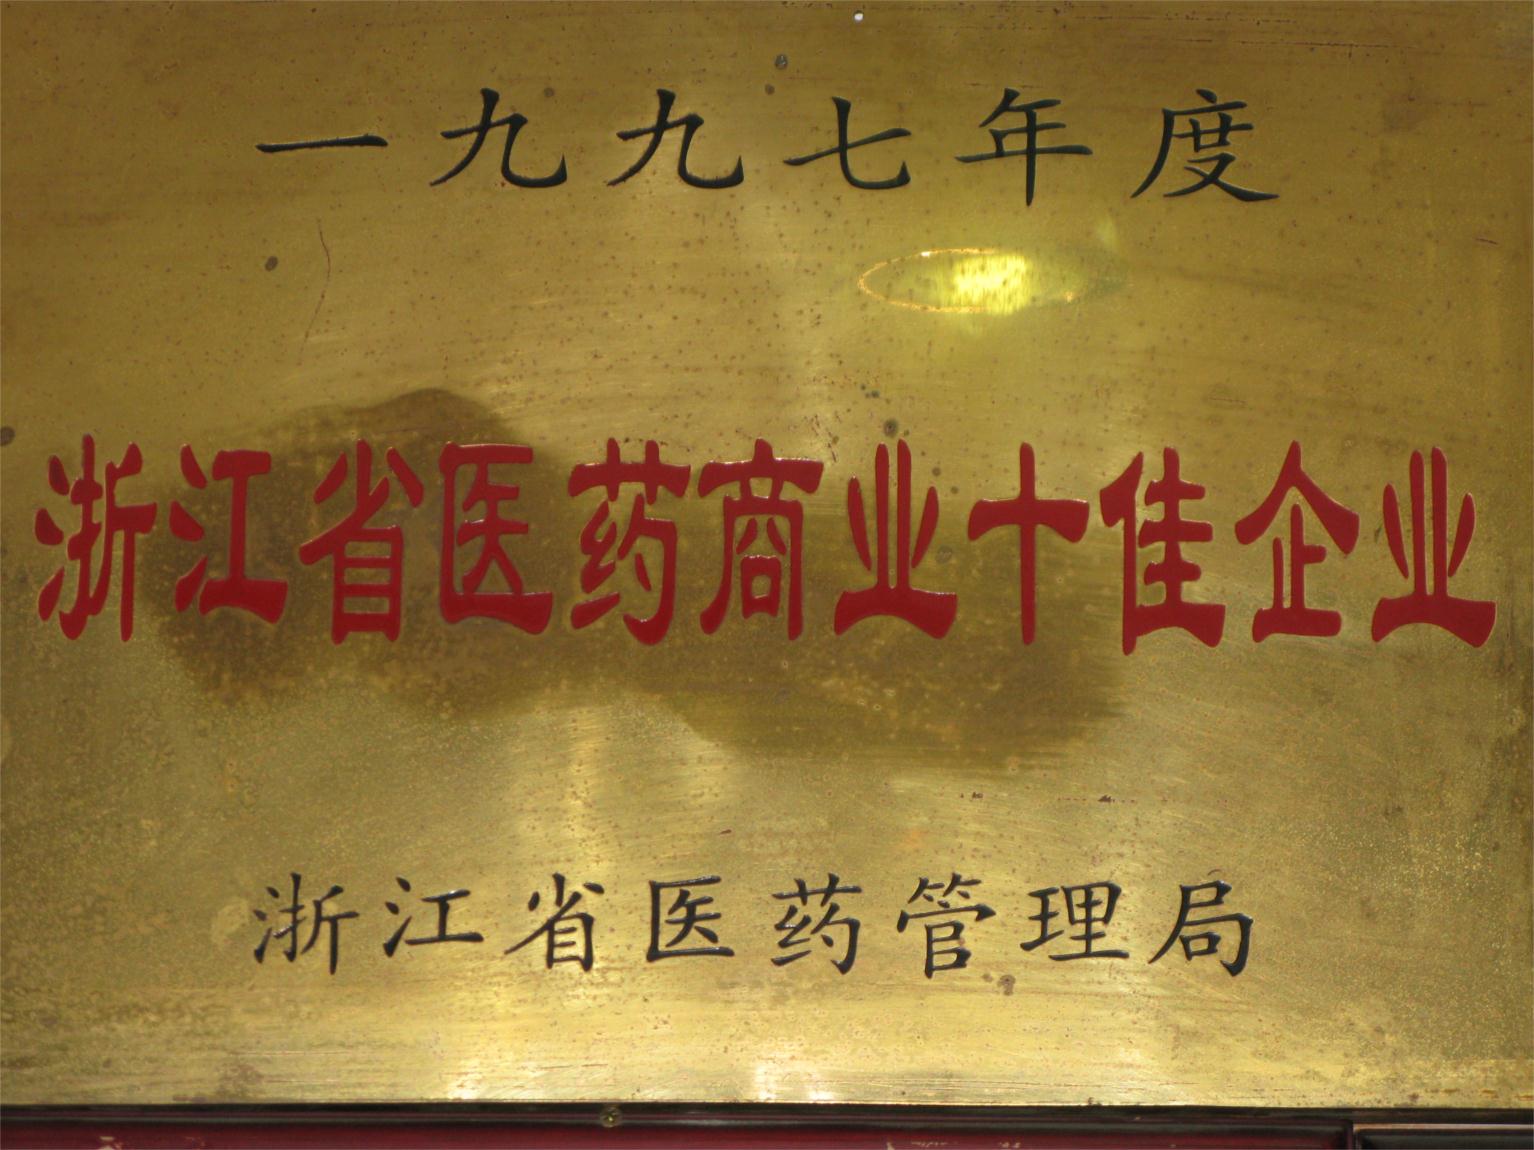 一九九七年度
浙江省医药商业十佳企业
浙江省医药管理局